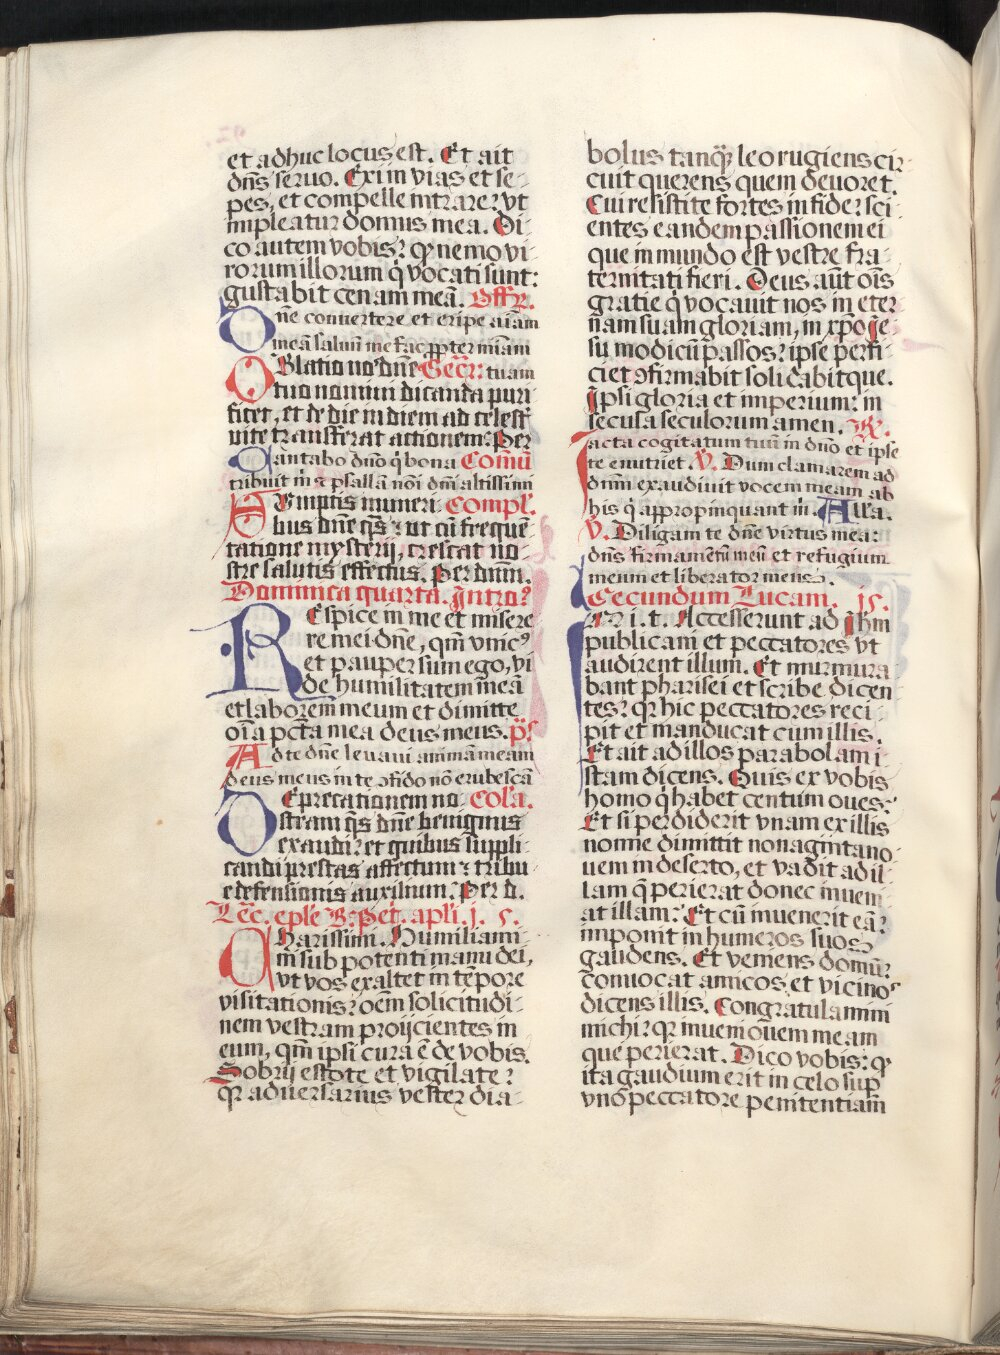 et adhuc locus est. Et ait
dn̄s seruo. Exi in vias et se-
pes, et compelle intrare: vt
impleatur domus mea. Di-
co autem vobis: qꝛ nemo vi-
rorum illorum q̇ vocati sunt:
gustabit cenam meā. Offr̄.
Dn̄e conuertere et eripe aīam
meā saluū me fac ꝓpter mīam
Oblatio nos dn̄e Secr̄: tuam
tuo nomini dicanda puri-
ficet, et de die in diem ad celest̄
vite transferat actionem: Per
Cantabo dn̄o q̇ bona Comū
tribuit m̄ & psallā nōi dn̄i altissimi
Sumptis muneri Compl̄.
bus dn̄e q̄s: ut cū frequē
tatione mysterij, crescat no-
stre salutis effectus. Per dn̄m.
Dominica quarta. Intro?
Respice in me et misere
re mei dn̄e, qm̄ vnicꝰ
et pauper sum ego, vi
de humilitatem meā
et laborem meum et dimitte
oīa pcc̄ta mea deus meus. p̄s
Ad te dn̄e leuaui animā meam
deus meus in te ꝯfido nō erubescā
Deprecationem no Col̄a.
stram q̄s dn̄e benignus
exaudi: et quibus suppli-
candi prestas affectum: tribu
e defensionis auxilium. Per d.
Lēc. epl̄e B. Pet̄. apl̄i. j. 5.
Charissimi. Humiliami-
ni sub potenti manu dei,
vt vos exaltet in tēpore
visitationis: oēm solicitudi-
nem vestram proijcientes in
eum, qm̄ ipsi cura ē de vobis.
Sobrij estote et vigilate:
qꝛ aduersarius vester dia-
bolus tanq̄ leo rugiens cir-
cuit querens quem deuoret.
Cui resistite fortes in fide: sci-
entes eandem passionem ei
que in mundo est vestre fra-
ternitati fieri. Deus aūt oīs
gratie q̇ vocauit nos in eter
nam suam gloriam, in xp̄o Je-
su modicū passos: ipse perfi-
ciet ꝯfirmabit solidabitque.
Ipsi gloria et imperium: in
secula seculorum amen. R.
Jacta cogitatum tuū in dn̄o et ipse
te enutriet. V. Dum clamarem ad
dn̄m exaudiuit vocem meam ab
his q̇ appropinquant m̄. All̄a.
V. Diligam te dn̄e virtus mea:
dn̄s firmamētū meū et refugium
meum et liberator meus.
Secundum Lucam. 15.
In i. t. Accesserunt ad Ihm̄
publicani et peccatores vt
audirent illum. Et murmura-
bant pharisei et scribe dicen
tes: qꝛ hic peccatores reci-
pit et manducat cum illis.
Et ait ad illos parabolam i-
stam dicens. Quis ex vobis
homo q̇ habet centum oues:
Et si perdiderit vnam ex illis
nonne dimittit nonagintano-
uem in deserto, et vadit ad il-
lam q̄ perierat donec inueni-
at illam: Et cū inuenerit eā:
imponit in humeros suos
gaudens. Et veniens domū:
conuocat amicos et vicinos
dicens illis. Congratulamini
michi: qꝛ inueni ouem meam
que perierat. Dico vobis: qꝛ
ita gaudium erit in celo sup̄
vno peccatore penitentiam̄